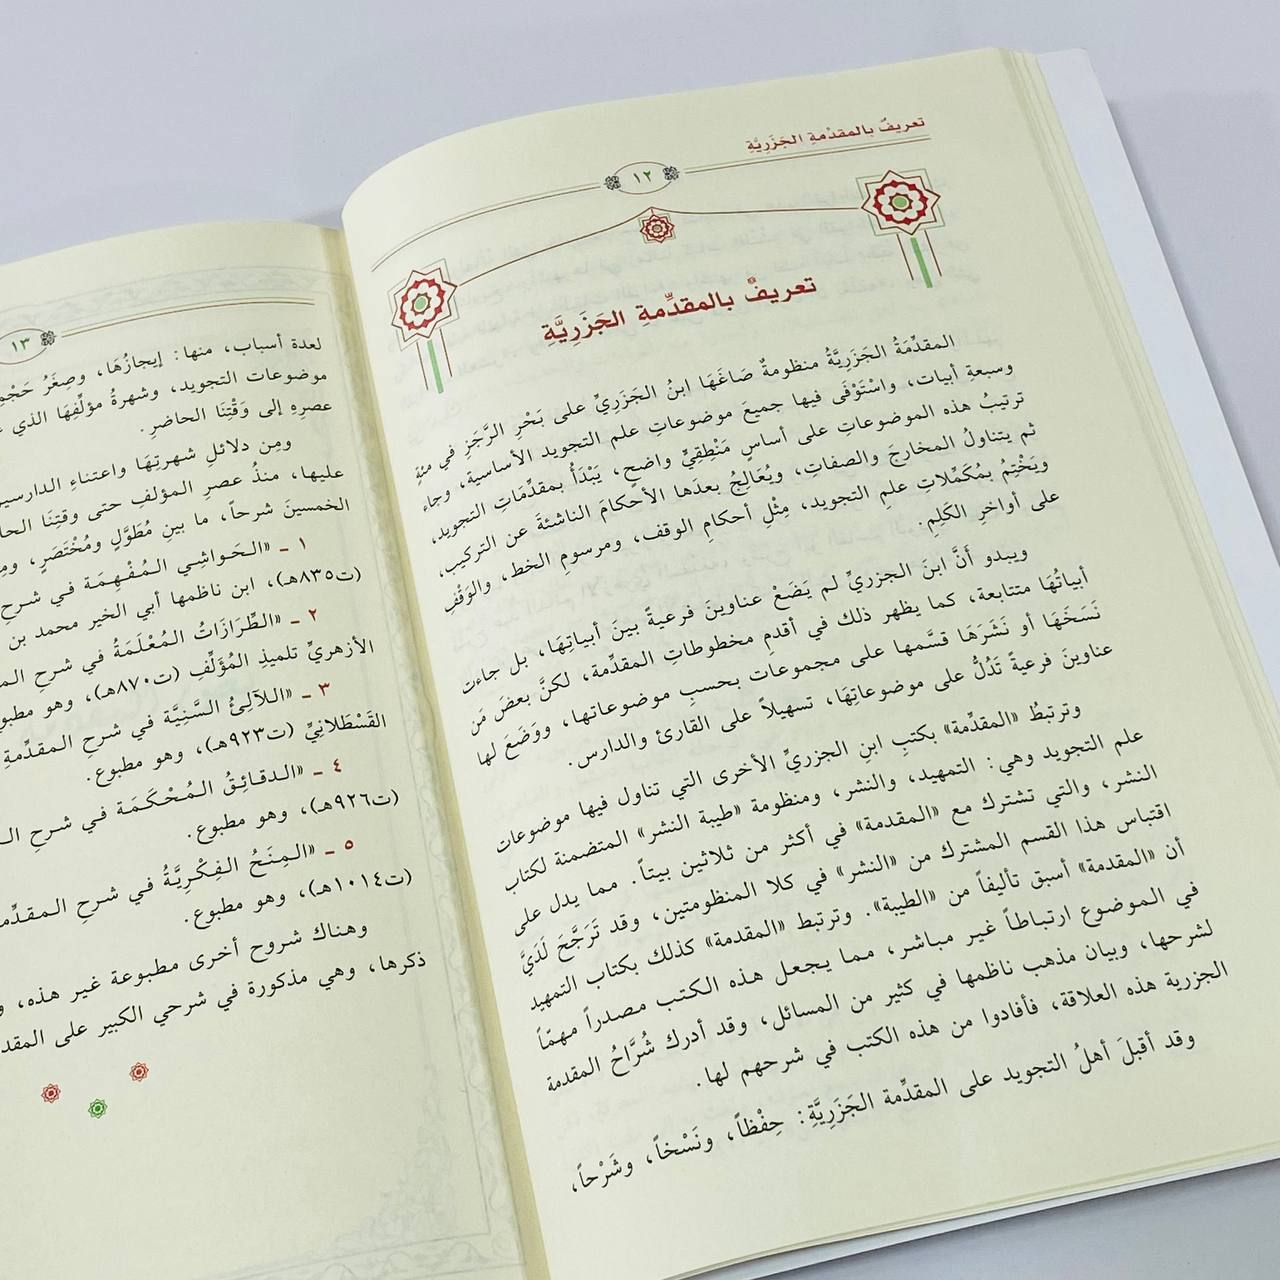 تعريفٌ بالمقدّمةِ الجَزَرِيَّةِ
١٢
تعريفٌ بالمقدِّمةِ الجَزَرِيَّةِ
المقدِّمَةُ الجَزَرِيَّةُ منظومةٌ صَاغَهَا ابنُ الجَزَرِيِّ على بَحْرِ الرَّجَزِ في مئةٍ
وسبعةِ أبيات، واسْتَوْفَى فيها جميعَ موضوعاتِ علم التجويد الأساسية، وجاء
ترتيبُ هذه الموضوعاتِ على أساسٍ مَنْطِقِيٍّ واضحٍ، يَبْدَأُ بمقدِّمَاتِ التجويد،
ثم يتناولُ المخارجَ والصفاتِ، ويُعَالِجُ بعدَها الأحكامَ الناشئةَ عن التركيب،
ويَخْتِمُ بمُكَمِّلاتِ علمِ التجويد، مِثْلِ أحكامِ الوقف، ومرسومِ الخط، والوَقْفِ
على أواخرِ الكَلِمِ.
ويبدو أنَّ ابنَ الجزريِّ لم يَضَعْ عناوينَ فرعيةً بينَ أبياتِهَا، بل جاءت
أبياتُهَا متتابعة، كما يظهر ذلك في أقدمِ مخطوطاتِ المقدِّمة، لكنَّ بعضَ مَن
نَسَخَهَا أو نَشَرَهَا قسَّمها على مجموعات بحسبِ موضوعاتها، ووَضَعَ لها
عناوينَ فرعيةً تَدُلُّ على موضوعاتِهَا، تسهيلاً على القارئ والدارس.
وترتبطُ «المقدِّمة» بكتبِ ابنِ الجزريِّ الأخرى التي تناول فيها موضوعات
علم التجويد وهي: التمهيد، والنشر، ومنظومة «طيبة النشر» المتضمنة لكتاب
النشر، والتي تشترك مع «المقدمة» في أكثر من ثلاثين بيتاً. مما يدل على
اقتباس هذا القسم المشترك من «النشر» في كلا المنظومتين، وقد تَرَجَّحَ لَدَيَّ
أن «المقدمة» أسبق تأليفاً من «الطيبة». وترتبط «المقدمة» كذلك بكتاب التمهيد
في الموضوع ارتباطاً غير مباشر، مما يجعل هذه الكتب مصدراً مهمّاً
لشرحها، وبيان مذهب ناظمها في كثير من المسائل، وقد أدرك شُرَّاحُ المقدمة
الجزرية هذه العلاقة، فأفادوا من هذه الكتب في شرحهم لها.
وقد أقبلَ أهلُ التجويد على المقدِّمة الجَزَرِيَّةِ: حِفْظاً، ونَسْخاً، وشَرْحاً،
١٣
لعدة أسباب، منها: إيجازُهَا، وصِغَرُ
موضوعات التجويد، وشهرةُ مؤلِّفِهَا الذي
عصرِهِ إلى وَقْتِنَا الحاضرِ.
ومِن دلائلِ شهرتِهَا واعتناءِ
عليها، منذُ عصرِ المؤلفِ حتى وقتِنَا
الخمسينَ شرحاً، ما بينِ مُطَوَّلٍ ومُخْتَصَرٍ،
١ ـ «الحَواشِي المُفْهِمَة في شرحِ
(ت٨٣٥هـ)، ابن ناظمها أبي الخير محمد بن
٢ ـ «الطِّرَازَاتُ المُعْلَمَةُ في شرحِ
الأزهريِّ تلميذِ المُؤَلِّفِ (ت٨٧٠هـ)، وهو
٣ ـ «اللآلِئُ السَّنِيَّة في شرحِ المقدِّمةِ
القَسْطَلانِيِّ (ت٩٢٣هـ)، وهو مطبوع.
٤ ـ «الدقائِقُ المُحْكَمَة في شرحِ
(ت٩٢٦هـ)، وهو مطبوع.
٥ ـ «المِنَحُ الفِكْرِيَّةُ في شرحِ
(ت١٠١٤هـ)، وهو مطبوع.
وهناك شروح أخرى مطبوعة غير هذه،
ذكرها، وهي مذكورة في شرحي الكبير على